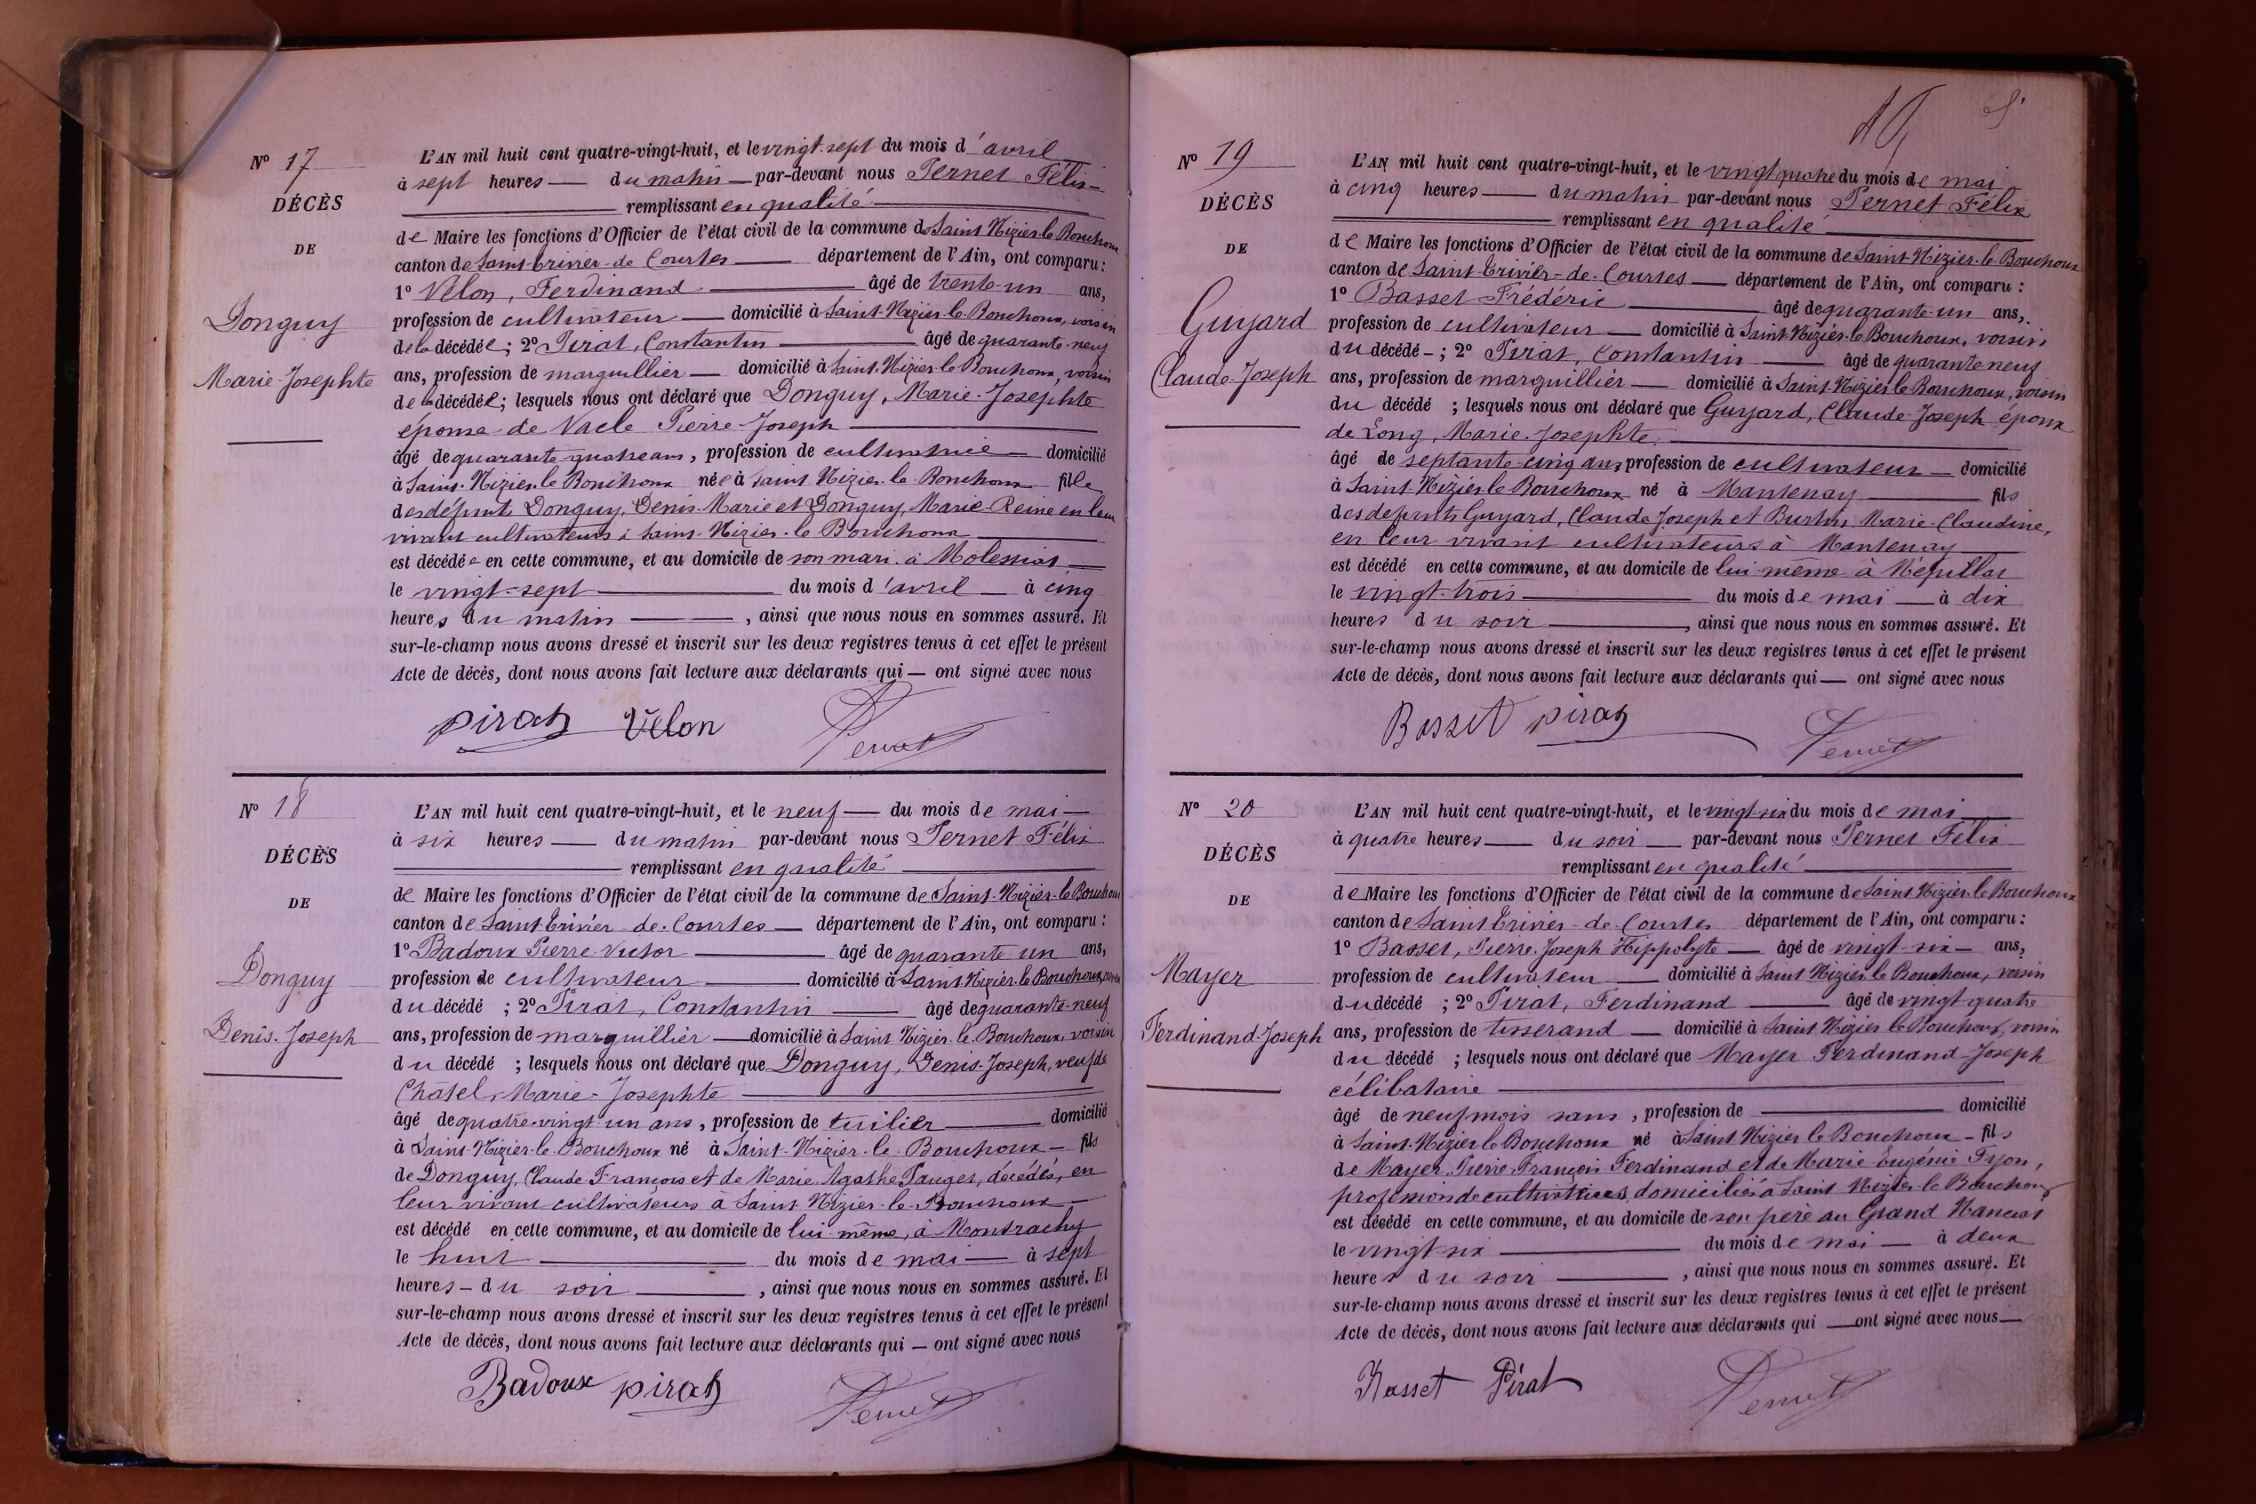 N° 17
DÉCÈS
DE
Donguy
Marie-Josephte
L'AN mil huit cent quatre-vingt-huit, et le vingt-sept du mois d'avril
à sept heures du matin par-devant nous Pernet Félix
remplissant en qualité
de Maire les fonctions d'Officier de l'état civil de la commune de Saint-Nizier-le-Bouchoux
canton de Saint-Trivier-de-Courtes département de l'Ain, ont comparu :
1° Velon, Ferdinand âgé de trente-un ans,
profession de cultivateur domicilié à Saint-Nizier-le-Bouchoux, voisin
de la décédée ; 2° Pirat, Constantin âgé de quarante-neuf
ans, profession de marguillier domicilié à Saint-Nizier-le-Bouchoux, voisin
de la décédée ; lesquels nous ont déclaré que Donguy, Marie-Josephte
épouse de Vacle Pierre-Joseph
âgé de quarante quatre ans, profession de cultivatrice domicilié
à Saint-Nizier-le-Bouchoux née à Saint-Nizier-le-Bouchoux fille
des défunts Donguy, Denis-Marie et Donguy, Marie-Reine en leur
vivant cultivateurs à Saint-Nizier-le-Bouchoux
est décédée en cette commune, et au domicile de son mari à
le vingt-sept du mois d'avril à cinq
heures du matin , ainsi que nous nous en sommes assuré. Et
sur-le-champ nous avons dressé et inscrit sur les deux registres tenus à cet effet le présent
Acte de décès, dont nous avons fait lecture aux déclarants qui — ont signé avec nous
Pirat Velon Pernet
N° 18
DÉCÈS
DE
Donguy
Denis-Joseph
L'AN mil huit cent quatre-vingt-huit, et le neuf du mois de mai
à six heures du matin par-devant nous Pernet Félix
remplissant en qualité
de Maire les fonctions d'Officier de l'état civil de la commune de Saint-Nizier-le-Bouchoux
canton de Saint-Trivier-de-Courtes département de l'Ain, ont comparu :
1° Badoux Pierre-Victor âgé de quarante un ans,
profession de cultivateur domicilié à Saint-Nizier-le-Bouchoux, voisin
du décédé ; 2° Pirat, Constantin âgé de quarante-neuf
ans, profession de marguillier domicilié à Saint-Nizier-le-Bouchoux voisin
du décédé ; lesquels nous ont déclaré que Donguy, Denis-Joseph, veuf de
Chatel, Marie-Josephte
âgé de quatre-vingt-un ans, profession de tuilier domicilié
à Saint-Nizier-le-Bouchoux né à Saint-Nizier-le-Bouchoux fils
de Donguy, Claude François et de Marie Agathe Pauget, décédés, en
leur vivant cultivateurs à Saint-Nizier-le-Bouchoux
est décédé en cette commune, et au domicile de lui même, à Montrachy
le huit du mois de mai à sept
heures du soir , ainsi que nous nous en sommes assuré. Et
sur-le-champ nous avons dressé et inscrit sur les deux registres tenus à cet effet le présent
Acte de décès, dont nous avons fait lecture aux déclarants qui — ont signé avec nous
Badoux Pirat Pernet
N° 19
DÉCÈS
DE
Guyard
Claude-Joseph
L'AN mil huit cent quatre-vingt-huit, et le vingt quatre du mois de mai
à cinq heures du matin par-devant nous Pernet Félix
remplissant en qualité
de Maire les fonctions d'Officier de l'état civil de la commune de Saint-Nizier-le-Bouchoux
canton de Saint-Trivier-de-Courtes département de l'Ain, ont comparu :
1° Basset Frédéric âgé de quarante-un ans,
profession de cultivateur domicilié à Saint-Nizier-le-Bouchoux, voisin
du décédé ; 2° Pirat, Constantin âgé de quarante neuf
ans, profession de marguillier domicilié à Saint-Nizier-le-Bouchoux, voisin
du décédé ; lesquels nous ont déclaré que Guyard, Claude-Joseph époux
de Long, Marie-Josephte
âgé de septante-cinq ans profession de cultivateur domicilié
à Saint-Nizier-le-Bouchoux né à Mantenay fils
des defunts Guyard, Claude Joseph et Burtin, Marie-Claudine,
en leur vivant cultivateurs à Mantenay
est décédé en cette commune, et au domicile de lui-même à
le vingt-trois du mois de mai à dix
heures du soir , ainsi que nous nous en sommes assuré. Et
sur-le-champ nous avons dressé et inscrit sur les deux registres tenus à cet effet le présent
Acte de décès, dont nous avons fait lecture aux déclarants qui — ont signé avec nous
Basset Pirat Pernet
N° 20
DÉCÈS
DE
Mayer
Ferdinand-Joseph
L'AN mil huit cent quatre-vingt-huit, et le vingt-six du mois de mai
à quatre heures du soir par-devant nous Pernet Félix
remplissant en qualité
de Maire les fonctions d'Officier de l'état civil de la commune de Saint-Nizier-le-Bouchoux
canton de Saint-Trivier-de-Courtes département de l'Ain, ont comparu :
1° Basset, Pierre-Joseph Hippolyte âgé de vingt-six ans,
profession de cultivateur domicilié à Saint-Nizier-le-Bouchoux, voisin
du décédé ; 2° Pirat, Ferdinand âgé de vingt quatre
ans, profession de tisserand domicilié à Saint-Nizier-le-Bouchoux, voisin
du décédé ; lesquels nous ont déclaré que Mayer Ferdinand-Joseph
célibataire
âgé de neuf mois sans, profession de domicilié
à Saint-Nizier-le-Bouchoux né à Saint-Nizier-le-Bouchoux fils
de Mayer Pierre François Ferdinand et de Marie Eugénie
profession de cultivatrices, domiciliés à Saint Nizier-le-Bouchoux
est décédé en cette commune, et au domicile de son père au Grand
le vingt-six du mois de mai à deux
heures du soir , ainsi que nous nous en sommes assuré. Et
sur-le-champ nous avons dressé et inscrit sur les deux registres tenus à cet effet le présent
Acte de décès, dont nous avons fait lecture aux déclarants qui — ont signé avec nous
Basset Pirat Pernet